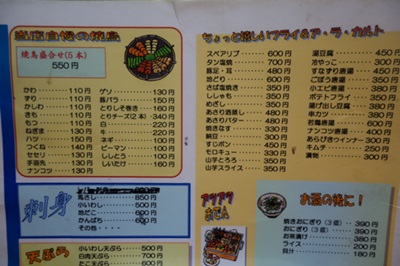 当店自慢の焼鳥
焼鳥盛合せ(5本)
550円
かわ 110円
ずり 110円
かしわ 110円
きも 110円
もつ 110円
ねぎま 130円
ハツ 150円
つくね 140円
セセリ 130円
手羽先 130円
ナンコツ 130円
ゲソ 130円
豚バラ 150円
とりしそ巻き 160円
とりチーズ(2本) 340円
白ネギ 110円
ネギ 110円
ピーマン 110円
ししとう 160円
しいたけ 160円
刺身
馬さし 850円
小いわし 500円
地だこ
かんぱち
その他
天ぷら
小いわし天ぷら 500円
白肉天ぷら 700円
たこ天ぷら
ちょっと嬉しいフライ&ア・ラ・カルト
スペアリブ 600円
タン塩焼 700円
豚足・耳 480円
砂ずり
さば塩焼き 350円
ししゃも 350円
めざし 350円
あさり酒蒸し 480円
あさりバター 480円
焼きなす
納豆 300円
すじポン 480円
モロキュー 330円
山芋とろろ 350円
山芋スライス 350円
湯豆腐 450円
すなずり唐揚 450円
ごぼう唐揚 350円
小いわし唐揚 450円
ポテトフライ 350円
揚げ出し豆腐 380円
串カツ 380円
若鶏唐揚 500円
ナンコツ唐揚 450円
あらびきウインナー 500円
キムチ 450円
漬物 300円
アツアツおでん
お酒の後に!
焼きおにぎり(3個) 390円
おにぎり(3個) 390円
お茶漬け 380円
ライス 200円
貝汁 180円